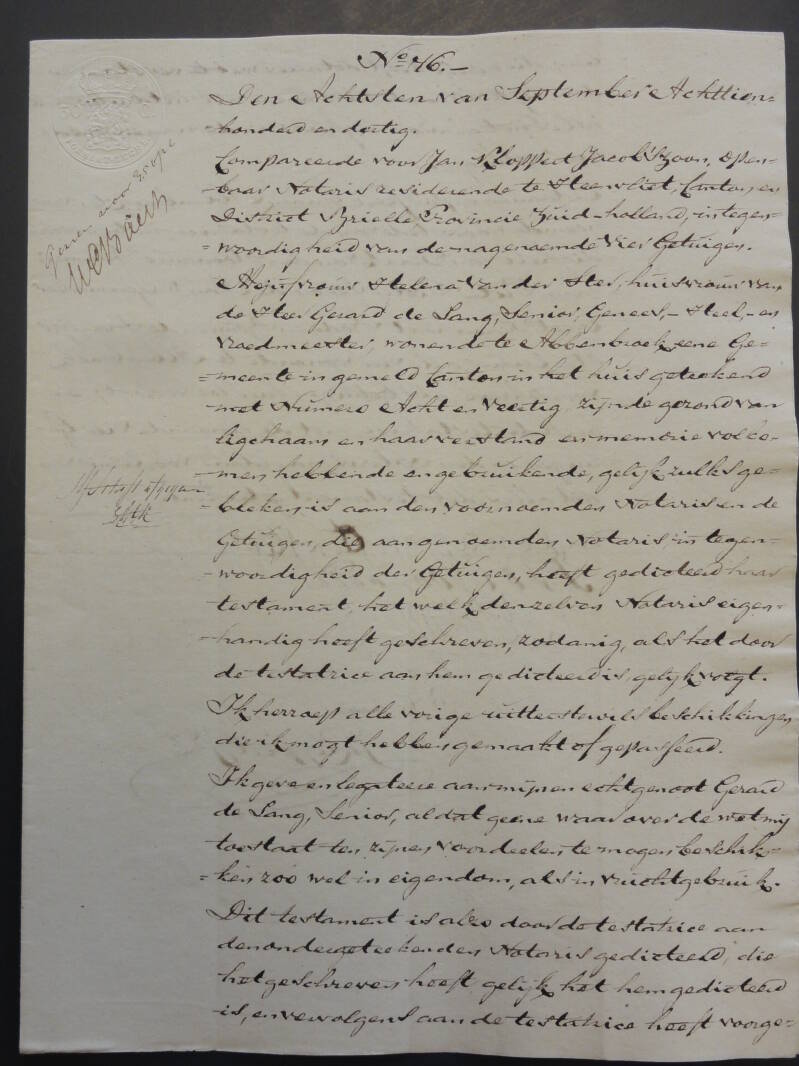 No. 46.-
Den Achtsten van September Achttien-
-honderd en dertig.
Compareerde voor Jan Kloppert Jacob'szoon, open-
-baar Notaris resideerende te Heenvliet, Canton en
District Brielle, Provincie Zuid-holland, in tegen-
-woordigheid van de nagenoemde Vier Getuigen.
Mejufvrouw Helena van der Ster, huisvrouw van
de Heer Gerard de Lang, Senior, Genees,- Heel,- en
Vroedmeester, wonende te Abbenbroek, eene Ge-
=meente in gemeld Canton in het huis geteekend
met Numero Acht en Veertig, zijnde gezond van
ligchaam en haar verstand en memorie volko-
-men hebbende en gebruikende, gelijk zulks ge-
-bleken is aan den voornoemden Notaris en de
Getuigen, die aangenoemden Notaris in tegen-
-woordigheid der Getuigen, heeft gedicteerd haar
testament, het welk denzelven Notaris eigen-
-handig heeft geschreven, zodanig, als het door
de testatrice aan hem gedicteerd is, gelijk volgt.
Ik herroep alle vorige uitterstewilsbeschikkingen
die ik mogt hebben gemaakt of gepasseerd.
Ik geve en legateere aan mijnen echtgenoot Gerard
de Lang, Senior, al dat geene waar over de wet mij
toestaat ten zijnen voordeelen te mogen beschik-
=ken zoo wel in eigendom, als in vruchtgebruik.
Dit testament is alzo door de testatrice aan
den ondergeteekenden Notaris gedicteerd, die
het geschreven heeft, gelijk het hem gedicteerd
is, en vervolgens aan de testatrice heeft voorge-